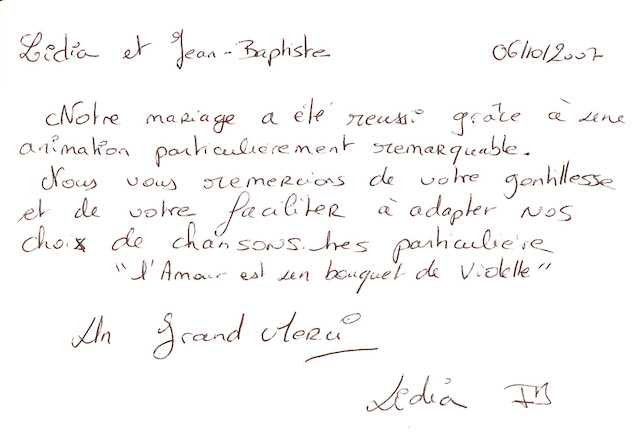 Lédia et Jean-Baptiste 06/10/2007
Notre mariage a été reussi grâce à une
animation particulièrement remarquable.
Nous vous remercions de votre gentillesse
et de votre faciliter à adapter nos
choix de chansons très particulière
"l'Amour est un bouquet de Violette"
Un Grand Merci
Lédia JB